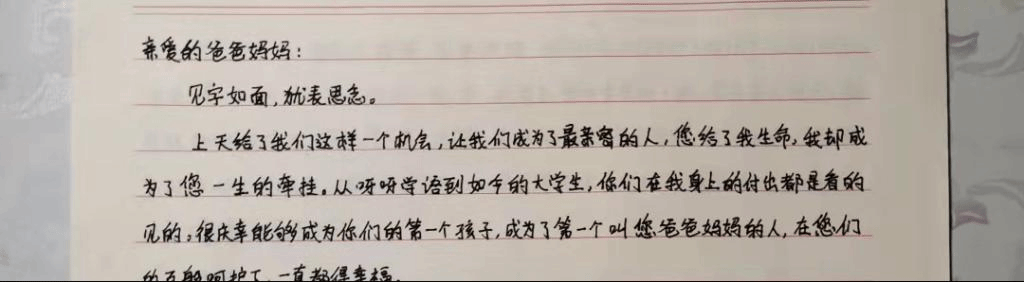 亲爱的爸爸妈妈:
见字如面,犹表思念。
上天给了我们这样一个机会,让我们成为了最亲密的人,您给了我生命,我却成
为了您一生的牵挂。从呀呀学语到如今的大学生,你们在我身上的付出都是看的
见的,很庆幸能够成为你们的第一个孩子,成为了第一个叫您爸爸妈妈的人,在您们
的百般呵护下,一直都很幸福。